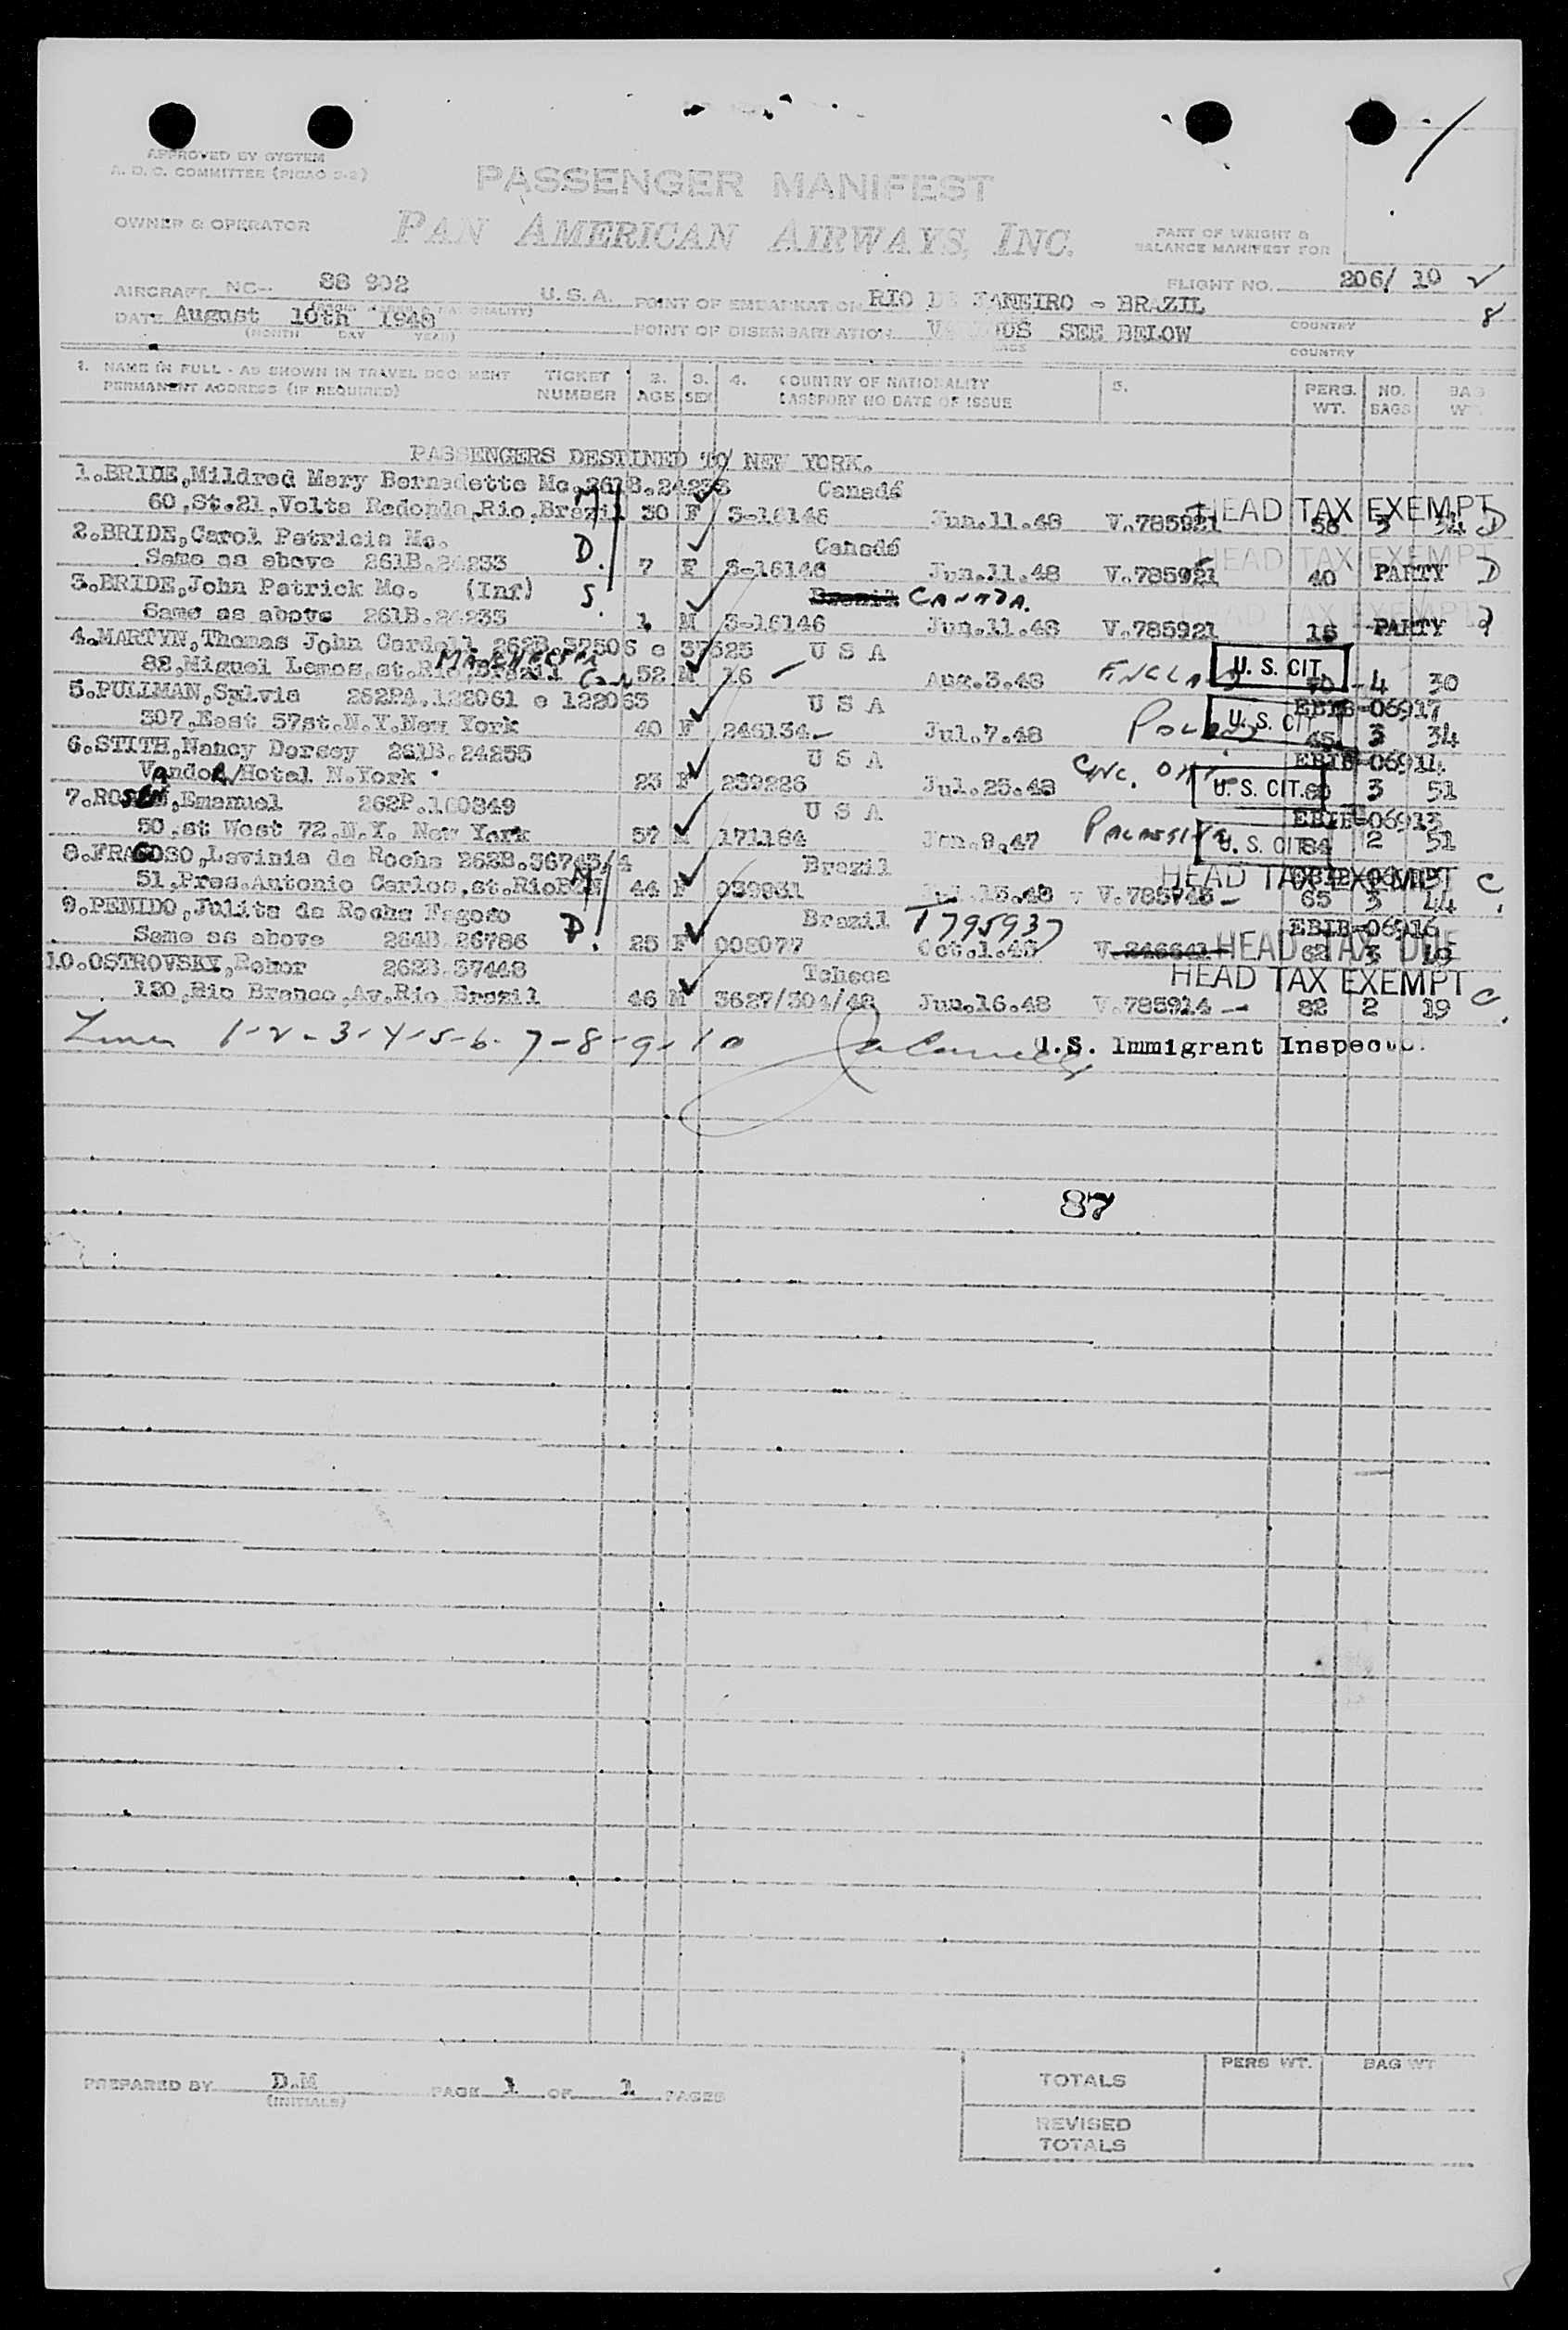 APPROVED BY SYSTEM
A. D. C. COMMITTEE (PICAO 3-2)
PASSENGER MANIFEST
OWNER & OPERATOR
PAN AMERICAN AIRWAYS, INC.
PART OF WEIGHT &
BALANCE MANIFEST FOR
AIRCRAFT NC- 88 902 U.S.A. POINT OF EMBARKATION RIO DE JANEIRO - BRAZIL
FLIGHT NO. 206/ 10
8
DATE August 10th 1948 POINT OF DISEMBARKATION SEE BELOW
COUNTRY
(MONTH DAY YEAR)
COUNTRY
1. NAME IN FULL - AS SHOWN IN TRAVEL DOCUMENT TICKET 2. 3. 4. COUNTRY OF NATIONALITY 5. PERS. NO. BAG
PERMANENT ADDRESS (IF REQUIRED) NUMBER AGE SEX PASSPORT NO DATE OF ISSUE WT. BAGS WT
PASSENGERS DESTINED TO NEW YORK.
1.BRIDE,Mildred Mary Bernadette Mc.261B.24233 Canadá
60,St.21,Volta Redonda,Rio,Brazil M 30 F 3-16146 Jun.11.48 V.785921 HEAD TAX EXEMPT 56 3 34 D
2.BRIDE,Carol Patricia Mc. D. Canadá
Same as above 261B.24233 7 F 3-16146 Jun.11.48 V.785921 HEAD TAX EXEMPT 40 PARTY D
3.BRIDE,John Patrick Mc. (Inf) S. Brazil CANADA.
Same as above 261B.24233 1 M 3-16146 Jun.11.48 V.785921 HEAD TAX EXEMPT 15 PARTY
4.MARTYN,Thomas John Cardell 262B.37506 e 37525 U S A
82,Miguel Lemos,st.Rio,Brazil 52 M 16 Aug.3.48 U. S. CIT. 70 4 30
5.PULLMAN,Sylvia 262PA.122061 e 122063 U S A EBIB-06917
307,East 57st.N.Y.New York 40 F 246134 Jul.7.48 POLAND U. S. CIT 45 3 34
6.STITH,Nancy Dorsey 261B.24255 U S A EBIB-06914
Vandor/Hotel N.York 23 F 239226 Jul.23.48 U. S. CIT. 60 3 51
7.ROSEN,Emanuel 262P.160849 U S A EBIB-06913
50,st West 72,N.Y. New York 57 M 171184 Jan.9.47 U. S. CIT 84 2 51
8.FRAGOSO,Lavinia da Rocha 262B.36743/4 Brazil
51,Pres.Antonio Carlos,st.Rio M 44 F 039931 V.785745 HEAD TAX EXEMPT 65 3 44 C.
9.PENIDO,Julita da Rocha Fagoso Brazil T795937 EBIB-06916
Same as above 264B.26786 D. 25 F 008077 Oct.1.46 V.246641 HEAD TAX DUE 62 3
10.OSTROVSKY,Rehor 262B.37448 Tcheca HEAD TAX EXEMPT
130,Rio Branco,Av.Rio Brazil 46 M 3627/304/48 Jun.16.48 V.785914 82 2 19 C.
Lines 1-2-3-4-5-6-7-8-9-10
U.S. Immigrant Inspector
87
PREPARED BY D.M PAGE 1 OF 1 PAGES
(INITIALS)
PERS WT. BAG WT
TOTALS
REVISED
TOTALS